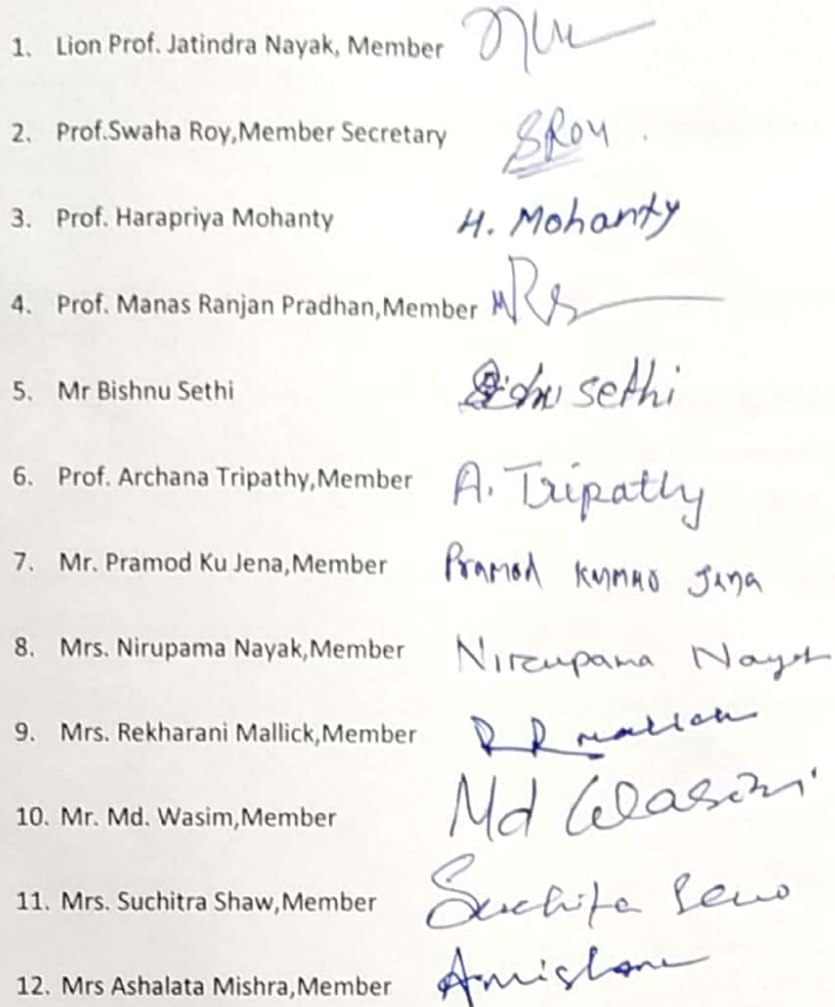 1. Lion Prof. Jatindra Nayak, Member
2. Prof.Swaha Roy,Member Secretary SRoy .
3. Prof. Harapriya Mohanty H. Mohanty
4. Prof. Manas Ranjan Pradhan,Member
5. Mr Bishnu Sethi sethi
6. Prof. Archana Tripathy,Member A. Tripathy
7. Mr. Pramod Ku Jena,Member Pramod Kumar Jena
8. Mrs. Nirupama Nayak,Member Nirupama Nayak
9. Mrs. Rekharani Mallick,Member R R mallick
10. Mr. Md. Wasim,Member Md Wasim
11. Mrs. Suchitra Shaw,Member
12. Mrs Ashalata Mishra,Member